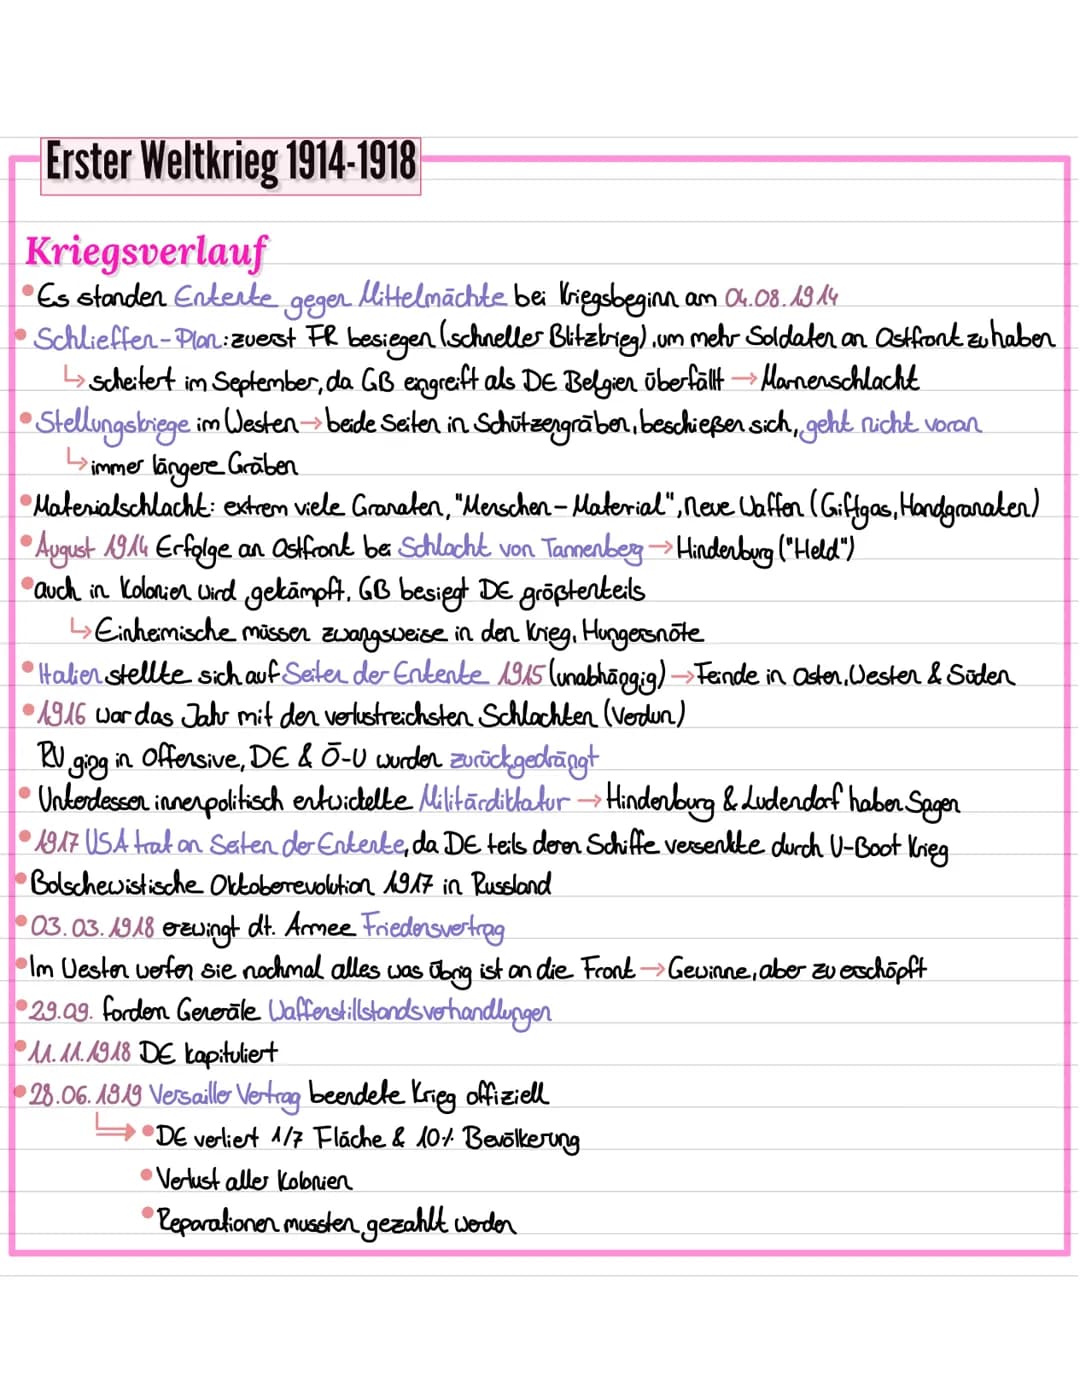 Erster Weltkrieg 1914-1918
Kriegsverlauf
• Es standen Entente gegen Mittelmächte bei Kriegsbeginn am 04.08.1914
• Schlieffen-Plan: zuerst FR besiegen (schneller Blitzkrieg), um mehr Soldaten an Ostfront zu haben
↳ scheitert im September, da GB eingreift als DE Belgien überfällt → Marnenschlacht
• Stellungskriege im Westen → beide Seiten in Schützengräben, beschießen sich, geht nicht voran
↳ immer längere Gräben
• Materialschlacht: extrem viele Granaten, "Menschen-Material", neue Waffen (Giftgas, Handgranaten)
• August 1914 Erfolge an Ostfront bei Schlacht von Tannenberg → Hindenburg ("Held")
• auch in Kolonien wird gekämpft, GB besiegt DE größtenteils
↳ Einheimische müssen zwangsweise in den Krieg, Hungersnöte
• Italien stellte sich auf Seiten der Entente 1915 (unabhängig) → Feinde in Osten, Westen & Süden
• 1916 war das Jahr mit den verlustreichsten Schlachten (Verdun)
RU ging in Offensive, DE & Ö-U wurden zurückgedrängt
• Unterdessen innenpolitisch entwickelte Militärdiktatur → Hindenburg & Ludendorf haben Sagen
• 1917 USA trat an Seiten der Entente, da DE teils deren Schiffe versenkte durch U-Boot Krieg
• Bolschewistische Oktoberrevolution 1917 in Russland
• 03.03.1918 erzwingt dt. Armee Friedensvertrag
• Im Westen werfen sie nochmal alles was übrig ist an die Front → Gewinne, aber zu erschöpft
• 29.09. fordern Generäle Waffenstillstandsverhandlungen
• 11.11.1918 DE kapituliert
• 28.06.1919 Versailler Vertrag beendete Krieg offiziell
↳ • DE verliert 1/7 Fläche & 10% Bevölkerung
• Verlust aller Kolonien
• Reparationen mussten gezahlt werden